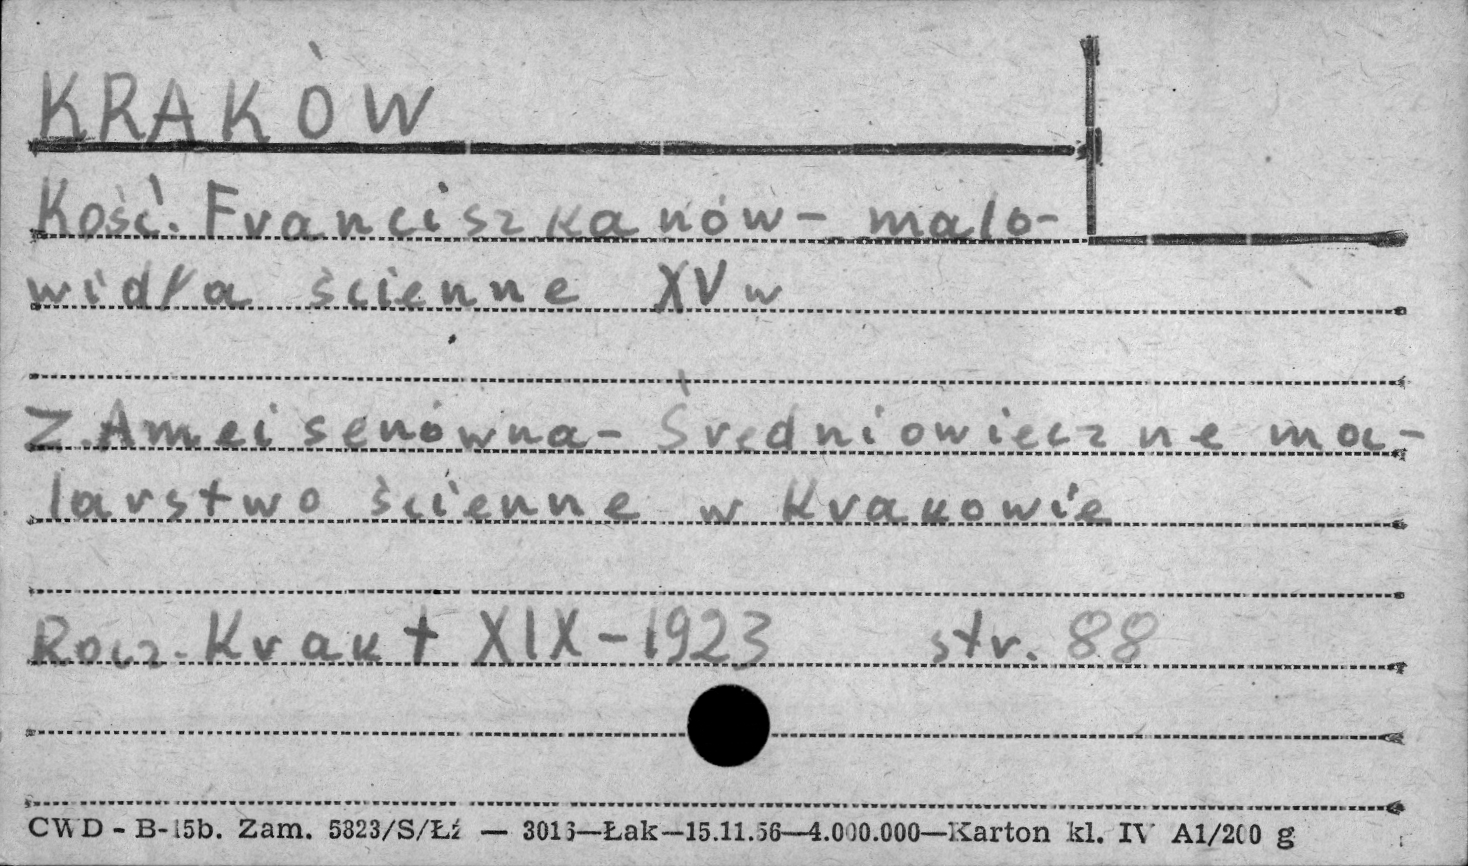 KRAKÓW
Kość. Franciszkanów- malo-
widła ścienne XV w
Z. Ameisenówna- Średniowieczne ma-
larstwo ścienne w Krakowie
Rocz. Krak t XIX-1923 str. 88
CWD - B-15b. Zam. 5823/S/Łź — 3013—Łak—15.11.56—4.000.000—Karton kl. IV A1/200 g